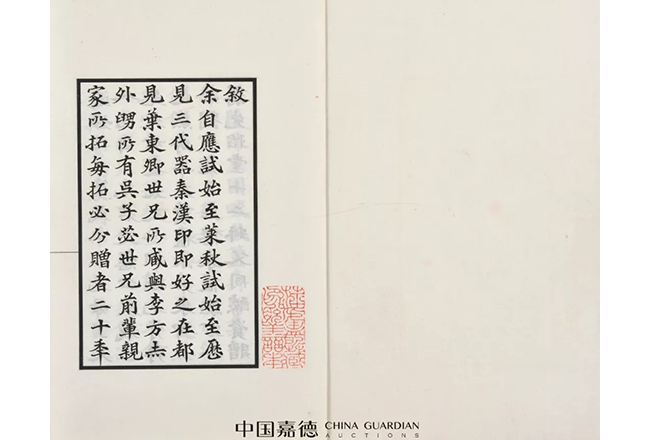 敘
余自應試始至萊秋試始至歷
見三代器秦漢印即好之在都
見葉東卿世兄所臧與李方赤
外舅所有吳子苾世兄前輩親
家所拓每拓必分贈者二十秊
中国嘉德 CHINA GUARDIAN
AUCTIONS